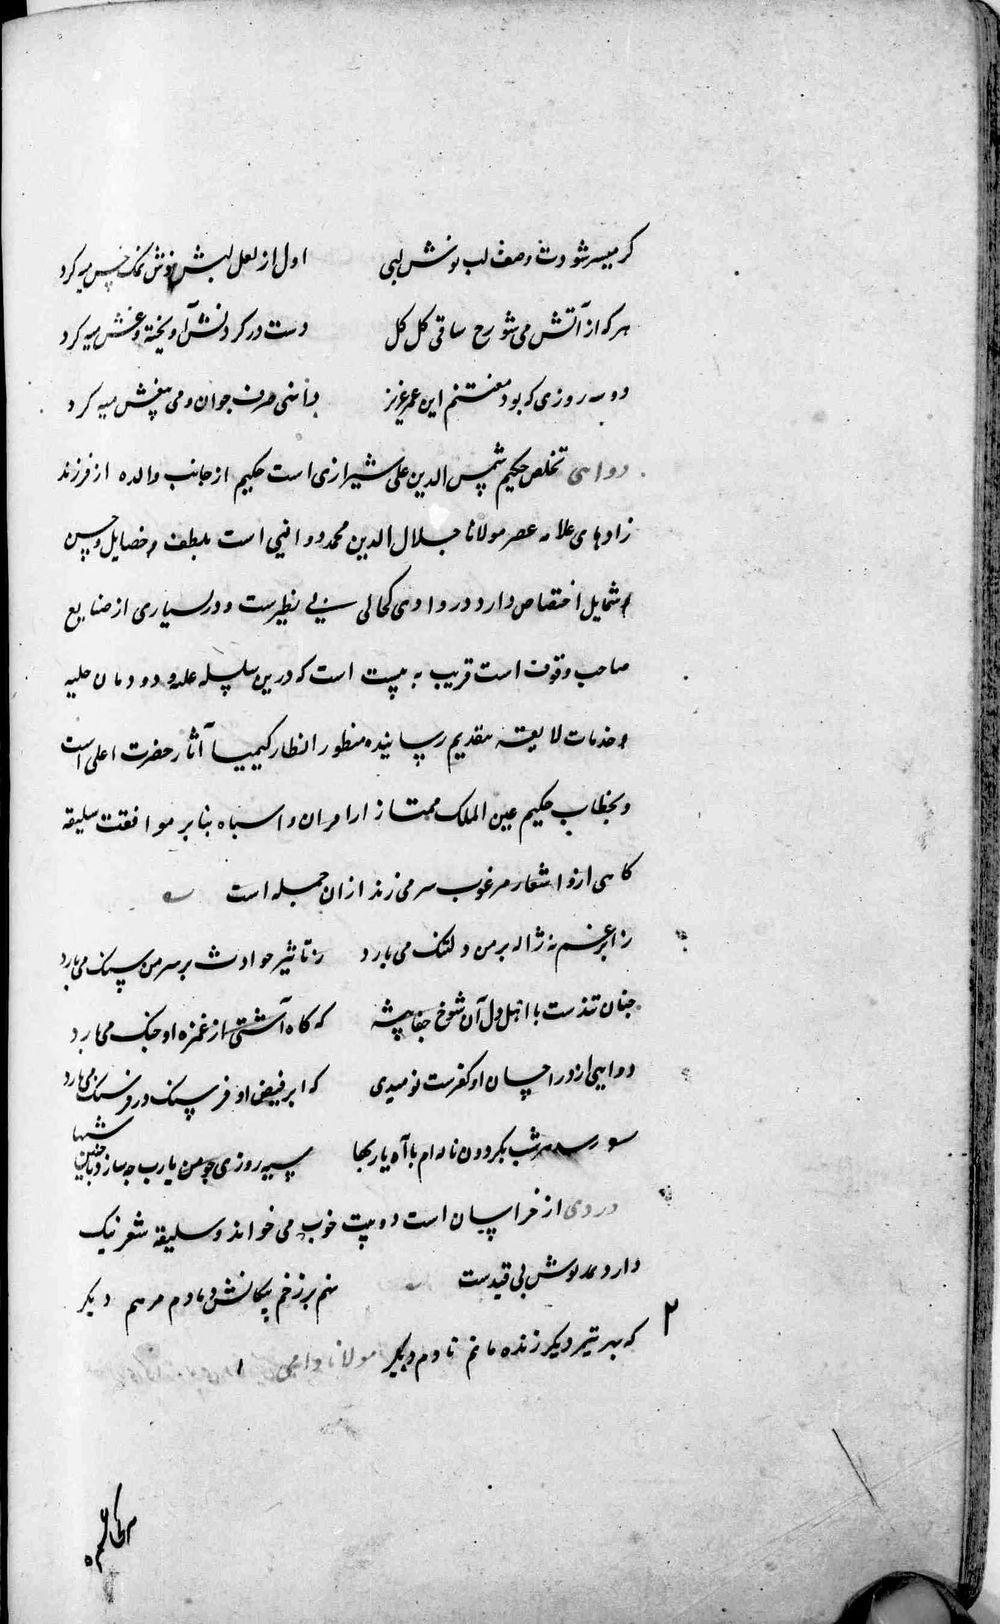 کر میسر شودت وصف لب نوش لبی اول از لعل لبش نوش نمک میه کرد
هر که از آتش می شو رخ ساقی کل کل دست در کردنش آویخته و غش میه کرد
دو سه روزی که بود مغتنم این عمر عزیز با می صرف جوان و می بیغش میه کرد
دواهی تخلص حکیم شمس الدین علی شیرازی است حکیم از جانب والده از فرزند
زادهای علامه عصر مولانا جلال الدین محمد دوانیی است بلطف خصایل و حسن
شمایل اختصاص دارد در وادی کحالی بی نظیرست و در بسیاری از صنایع
صاحب وقوف است قریب به بیست است که درین سلسله علیه و دودمان جلیه
خدمات لایقه بتقدیم رسانیده منظور انظار کیمیا آثار حضرت اعلی است
و بخطاب حکیم عین الملک ممتاز از امران و اسباه بنا بر موافقت سلیقه
کاهی ازو اشعار مرغوب سر می زند ازان جمله است
ز ابر غم نه ژاله بر من دلتنک می بارد ز تاثیر حوادث بر سر من سنک می بارد
چنان تندست با اهل دل آن شوخ جفا پیشه که کاه آشتی از غمزه او جنک می بارد
دوایی از در احسان او کفرست نومیدی که ابر فیض او فرسنک در فرسنک می بارد
رسد هر شب بکردون ناله ام با آه یاربها سیه روزی چو من یارب چه سازد با چنین شبها
دردی از خراسیان است دو بیت خوب می خواند و سلیقه شعر نیک
دارد بی قیدست منم بر زخم پیکانش دمادم مرهم دیکر
۲ که بهر تیر دیکر زنده مانم تا دم دیکر مولانا